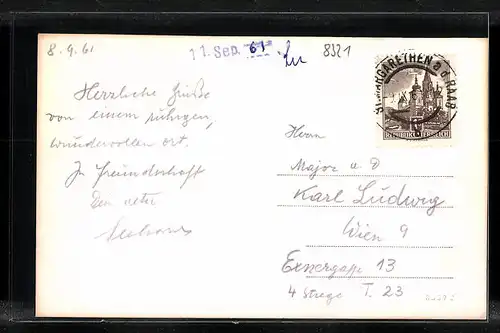 8.9.61
11. Sep. 61
8321
ST. MARGARETHEN a. d. RAAB
Herzliche Grüße
von einem ruhigen,
wundervollen Ort.
In Freundschaft
Dein alter
Herrn
Major a. D
Karl Ludwig
Wien 9
Exnergasse 13
4 Stiege T. 23